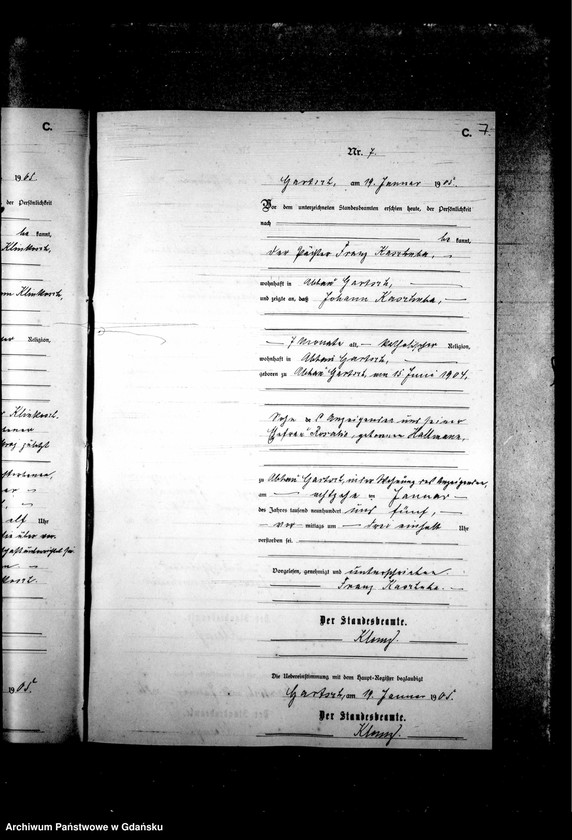 C.
1905
der Persönlichkeit
be kannt,
Klinkosch,
Religion,
Klinkosch.
elf Uhr
1905
C. 7.
Nr. 7.
Gartsch, am 19. Januar 1905.
Vor dem unterzeichneten Standesbeamten erschien heute, der Persönlichkeit
nach
be kannt,
der Pächter Franz Kaschuba,
wohnhaft in Abbau Gartsch,
und zeigte an, daß Johann Kaschuba,
7 Monate alt, katholischer Religion,
wohnhaft in Abbau Gartsch,
geboren zu Abbau Gartsch, am 15. Juni 1904,
Sohn des Anzeigenden und seiner
Ehefrau Rosalie, geborenen Hallmann,
zu Abbau Gartsch, in der Wohnung des Anzeigenden,
am achtzehn ten Januar
des Jahres tausend neunhundert und fünf,
vor mittags um drei einhalb Uhr
verstorben sei.
Vorgelesen, genehmigt und unterschrieben.
Franz Kaschuba.
Der Standesbeamte.
Die Uebereinstimmung mit dem Haupt-Register beglaubigt
Gartsch, am 19. Januar 1905.
Der Standesbeamte.
Archiwum Państwowe w Gdańsku